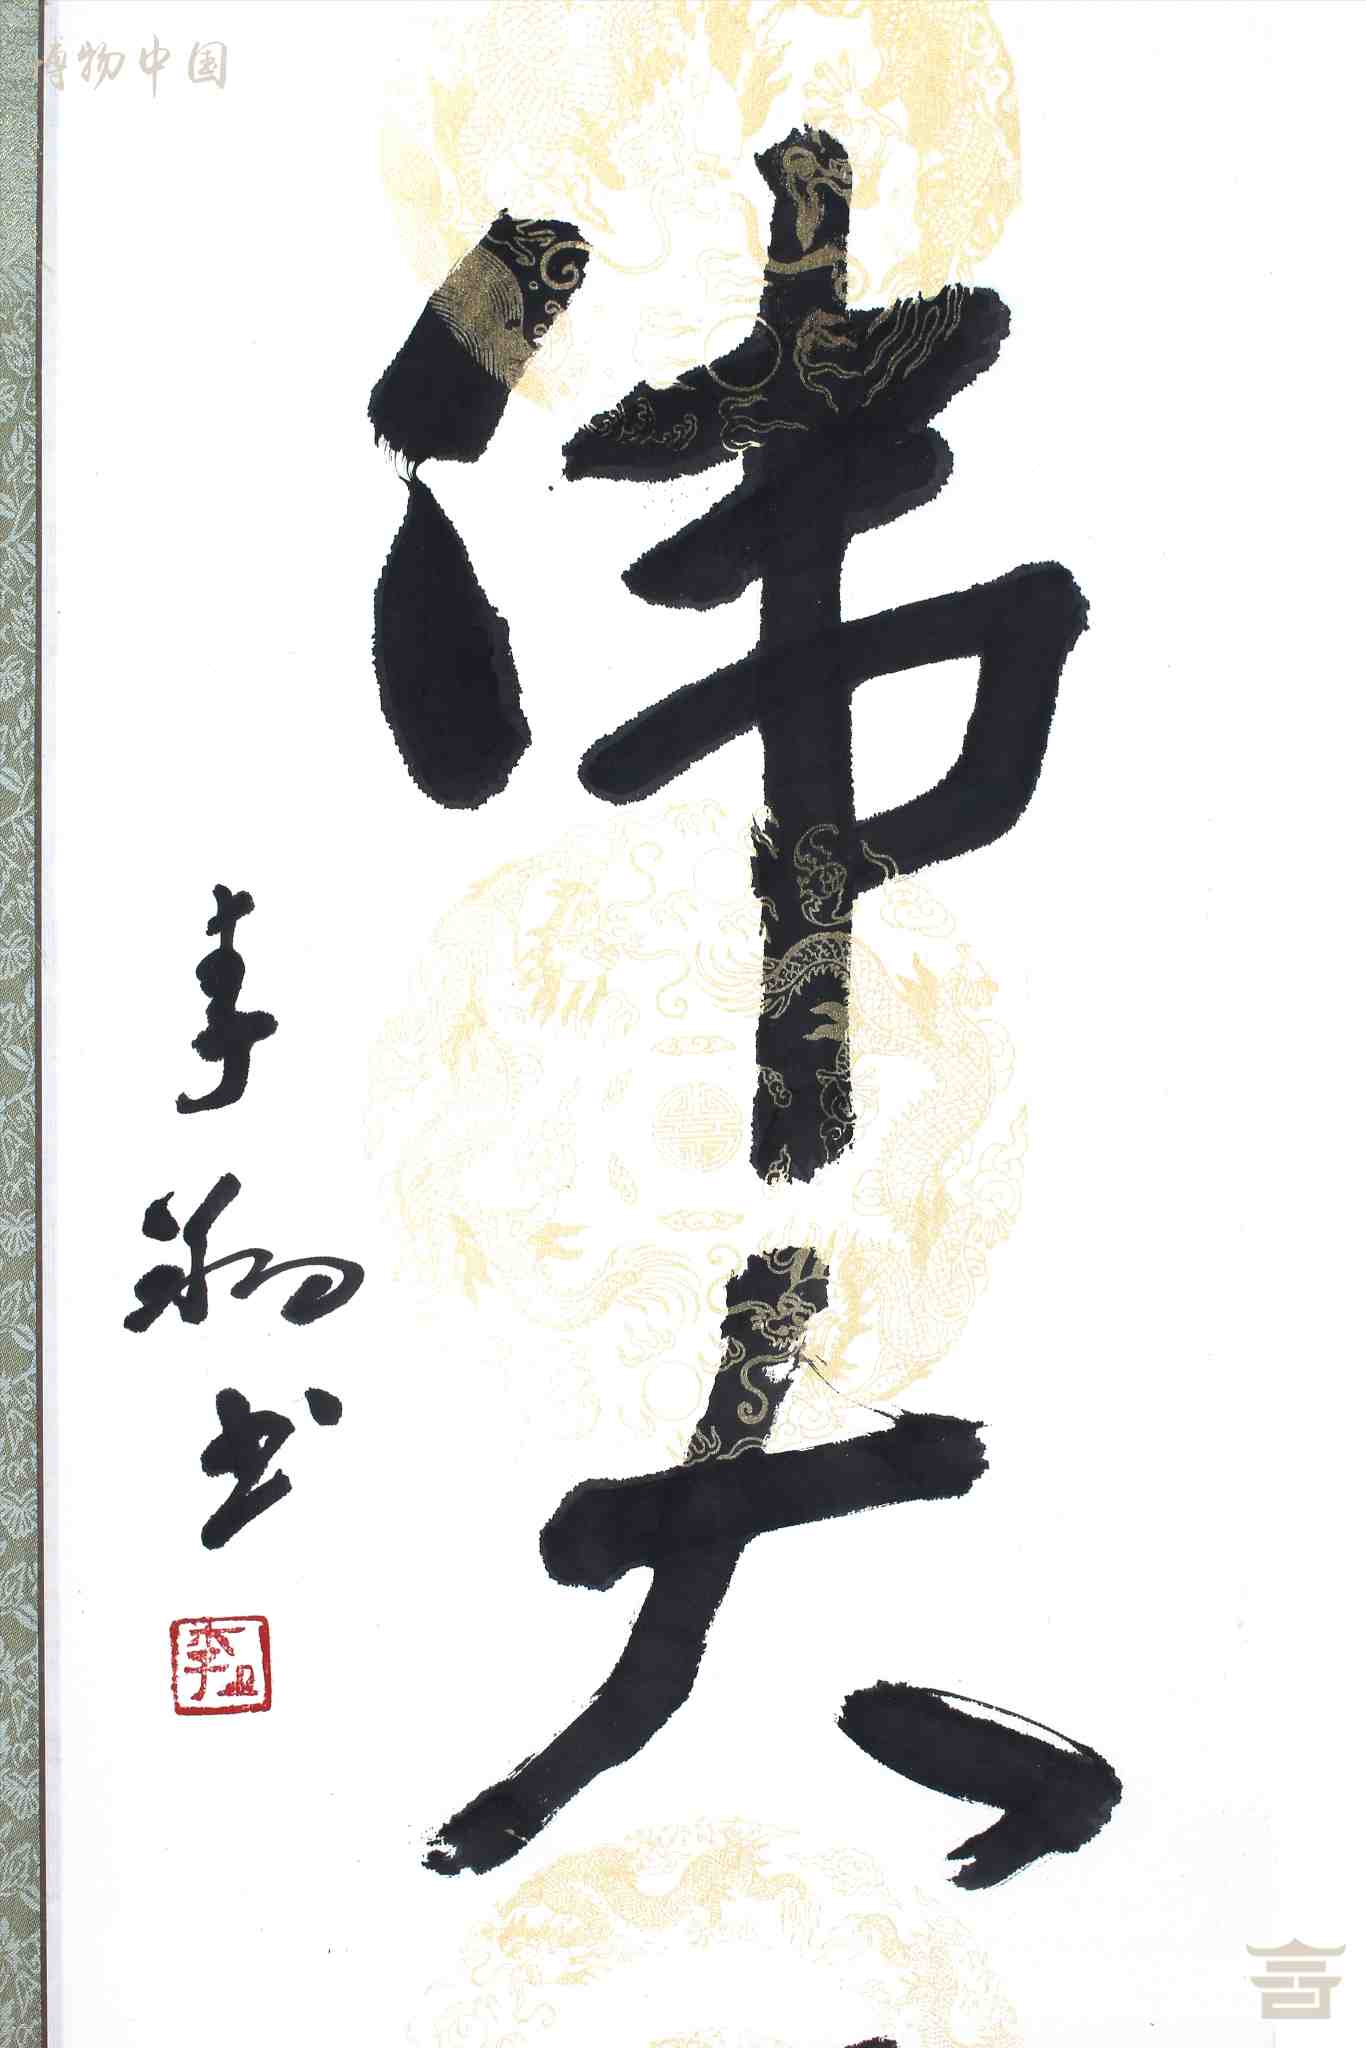 博物中国
伟大
李 书
李